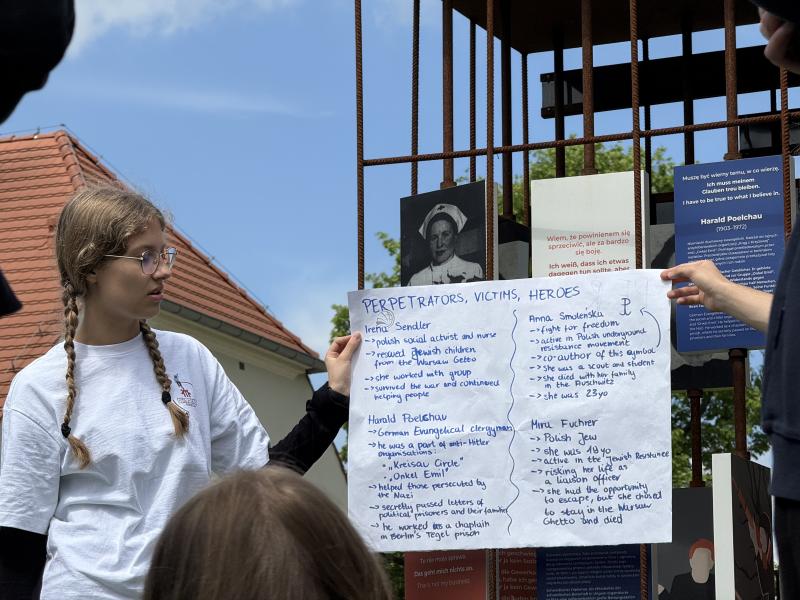 PERPETRATORS, VICTIMS, HEROES
Irena Sendler
→ polish social activist and nurse
→ rescued Jewish children
from the Warsaw Getto
→ she worked with group
→ survived the war and continued
helping people
Harald Poelchau
→ German Evangelical clergyman
→ he was a part of anti-Hitler
organisations:
• "Kreisau Circle"
• "Onkel Emil"
→ helped those persecuted by
the Nazi
→ secretly passed letters of
political prisoners and their families
→ he worked as a chaplain
in Berlin's Tegel prison
Anna Smoleńska
→ fight for freedom
→ active in Polish underground
resistance movement
→ co-author of this symbol
→ she was a scout and student
→ she died with her family
in the Auschwitz
→ she was 23yo
Mira Fuchrer
→ Polish Jew
→ she was 19 yo
→ active in the Jewish Resistance
→ risking her life as
a liaison officer
→ she had the opportunity
to escape, but she chosed
to stay in the Warsaw
Ghetto and died
Wiem, że powinienem się
sprzeciwić, ale za bardzo
się boję.
Ich weiß, dass ich etwas
dagegen tun sollte, aber
Muszę być wierny temu, w co wierzę.
Ich muss meinem
Glauben treu bleiben.
I have to be true to what I believe in.
Harald Poelchau
(1903–1972)
To nie moja sprawa.
Das geht mich nichts an.
That's not my business.